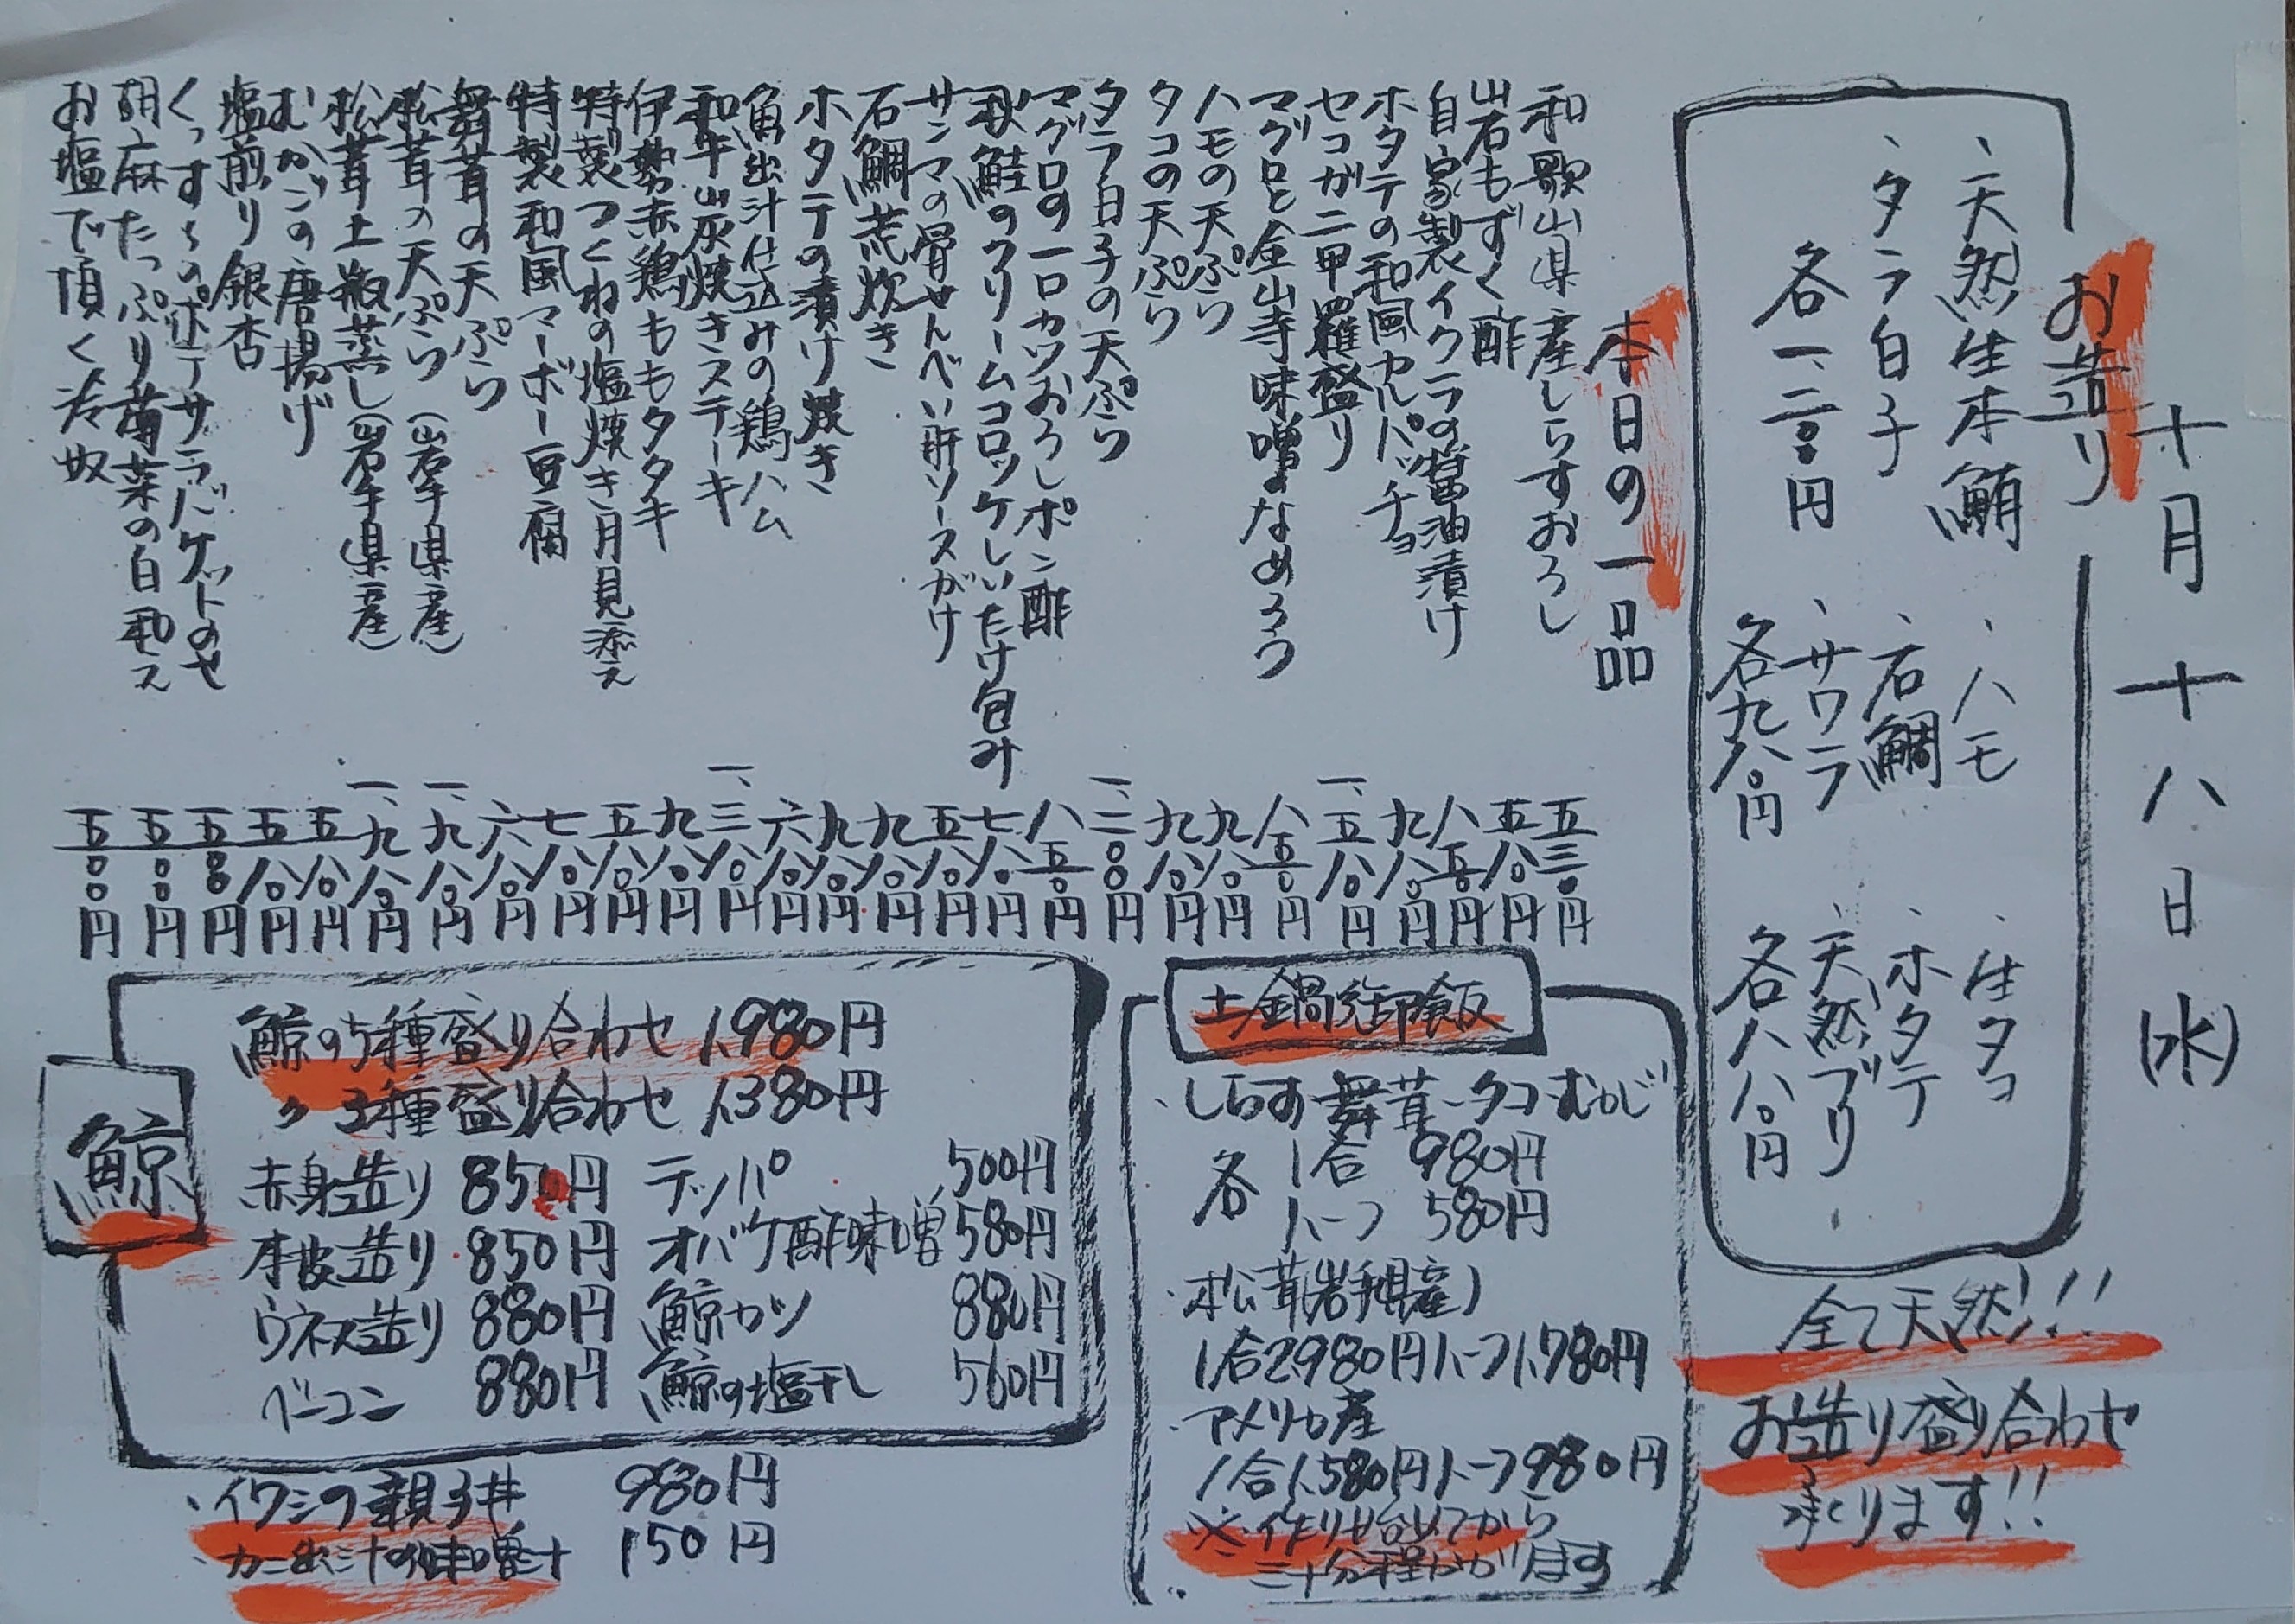 十月十八日(水)
お造り
、天然生本鮪
、タラ白子
各一、二〇〇円
、ハモ
、石鯛
、サワラ
各九八〇円
、生タコ
、ホタテ
、天然ブリ
各八八〇円
全て天然!!!
お造り盛り合わせ
承ります!!
本日の一品
和歌山県産しらすおろし 五三〇円
岩もずく酢 五八〇円
自家製イクラの醤油漬け 八五〇円
ホタテの和風カルパッチョ 九八〇円
セコガニ甲羅盛り 一、五八〇円
マグロと金山寺味噌のなめろう 八五〇円
ハモの天ぷら 九八〇円
タコの天ぷら 九八〇円
タラ白子の天ぷら 一、二〇〇円
マグロの一口カツおろしポン酢 八五〇円
秋鮭のクリームコロッケしいたけ包み 七八〇円
サンマの骨せんべい肝ソースがけ 五八〇円
石鯛荒炊き 九八〇円
ホタテの漬け焼き 九八〇円
魚出汁仕込みの鶏ハム 六八〇円
和牛山灰焼きステーキ 一、三八〇円
伊勢赤鶏ももタタキ 九八〇円
特製つくねの塩焼き月見添え 五八〇円
特製和風マーボー豆腐 七八〇円
舞茸の天ぷら 六八〇円
松茸の天ぷら(岩手県産) 一、九八〇円
松茸土瓶蒸し(岩手県産) 一、九八〇円
むかごの唐揚げ 五八〇円
塩煎り銀杏 五八〇円
くっすんのポテサラバケットのせ 五〇〇円
胡麻たっぷり菊菜の白和え 五〇〇円
お塩で頂く冷奴 五〇〇円
土鍋御飯
、しらす、舞茸、タコ、むかご
各 1合 980円
ハーフ 580円
、松茸(岩手県産)
1合2,980円ハーフ1,780円
、アメリカ産
1合1,580円ハーフ980円
※作り始めてから
三十分程かかります
鯨
鯨の5種盛り合わせ 1,980円
〃 3種盛り合わせ 1,380円
赤身造り 850円
本皮造り 850円
ウネス造り 880円
ベーコン 880円
テッパ 500円
オバケ酢味噌 580円
鯨カツ 880円
鯨の塩干し 560円
、イワシの親子丼 980円
、カニ出汁の味噌汁 150円